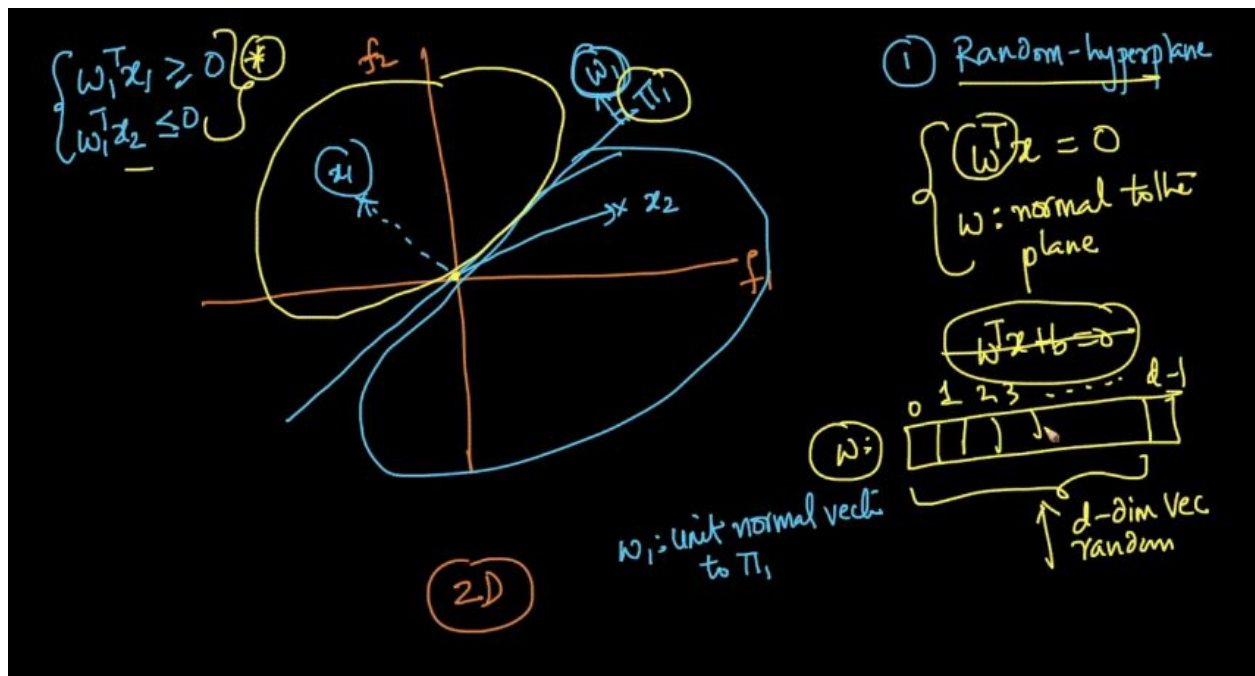 w₁ᵀx₁ ≥ 0
*
w₁ᵀx₂ ≤ 0
f₂
w₁
π₁
x₁
x₂
f₁
2D
① Random-hyperplane
wᵀx = 0
w: normal to the
plane
wᵀx+b=0
0 1 2 3 ...... d-1
w:
d-dim vec
random
w₁: unit normal vect
to π₁